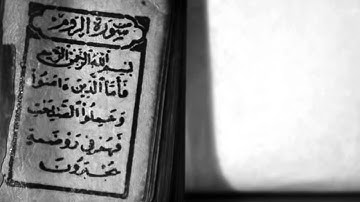 سورة الروم
بسم الله الرحمن الرحيم
فأما الذين ءامنوا
وعملوا الصلحت
فهم في روضة
يحبرون